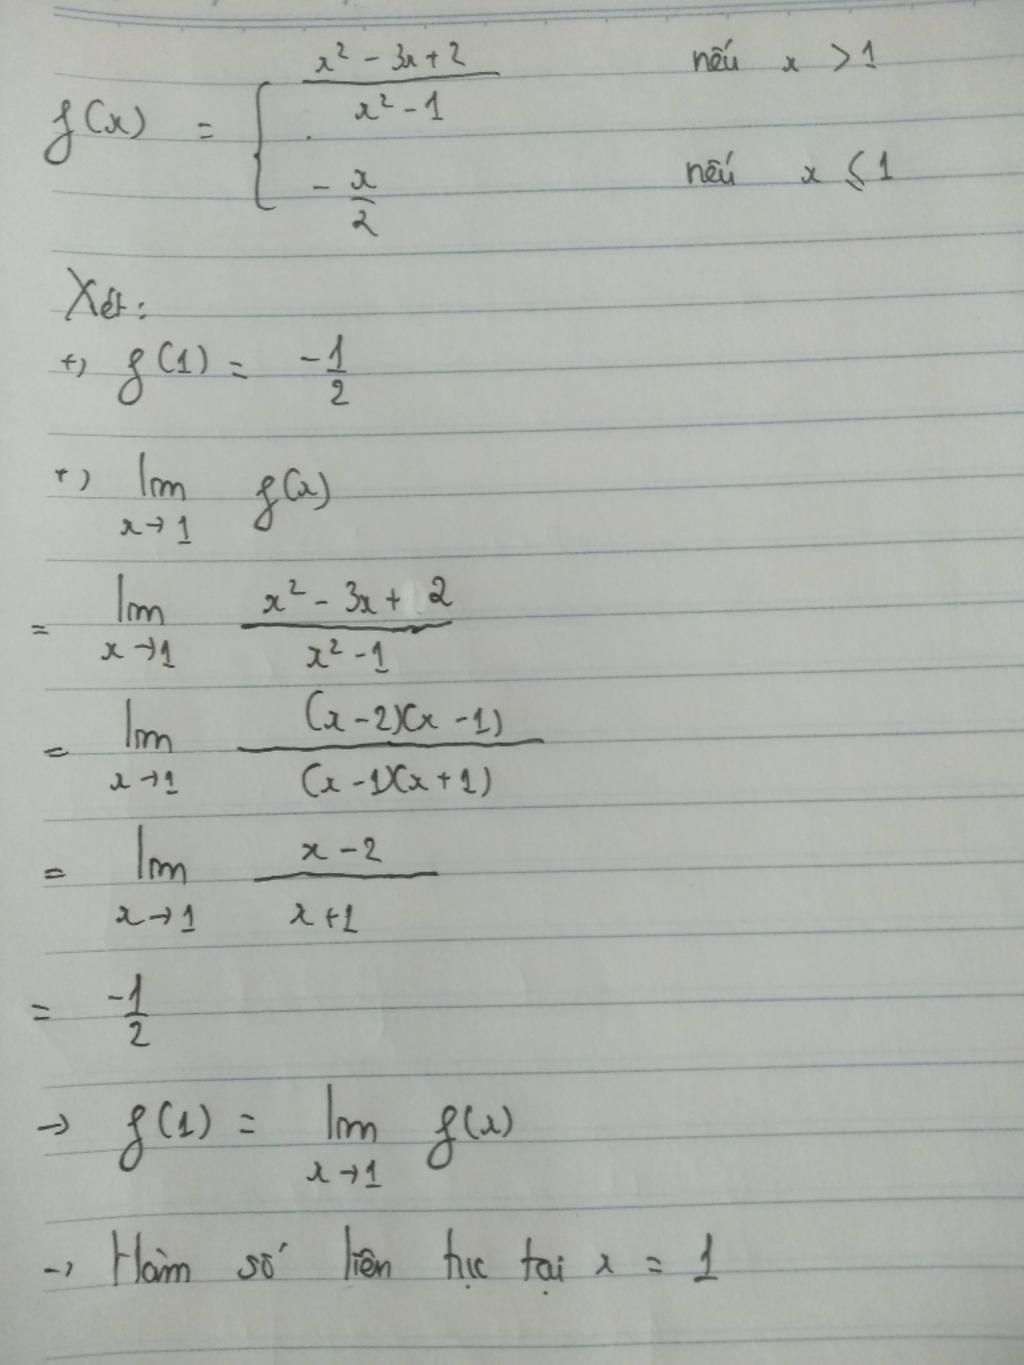 f(x) = { (x² - 3x + 2)/(x² - 1) nếu x > 1
- x/2 nếu x ≤ 1
Xét:
+, f(1) = -1/2
+, lim x→1 f(x)
= lim x→1 (x² - 3x + 2)/(x² - 1)
= lim x→1 (x - 2)(x - 1)/(x - 1)(x + 1)
= lim x→1 (x - 2)/(x + 1)
= -1/2
→ f(1) = lim x→1 f(x)
→ Hàm số liên tục tại x = 1